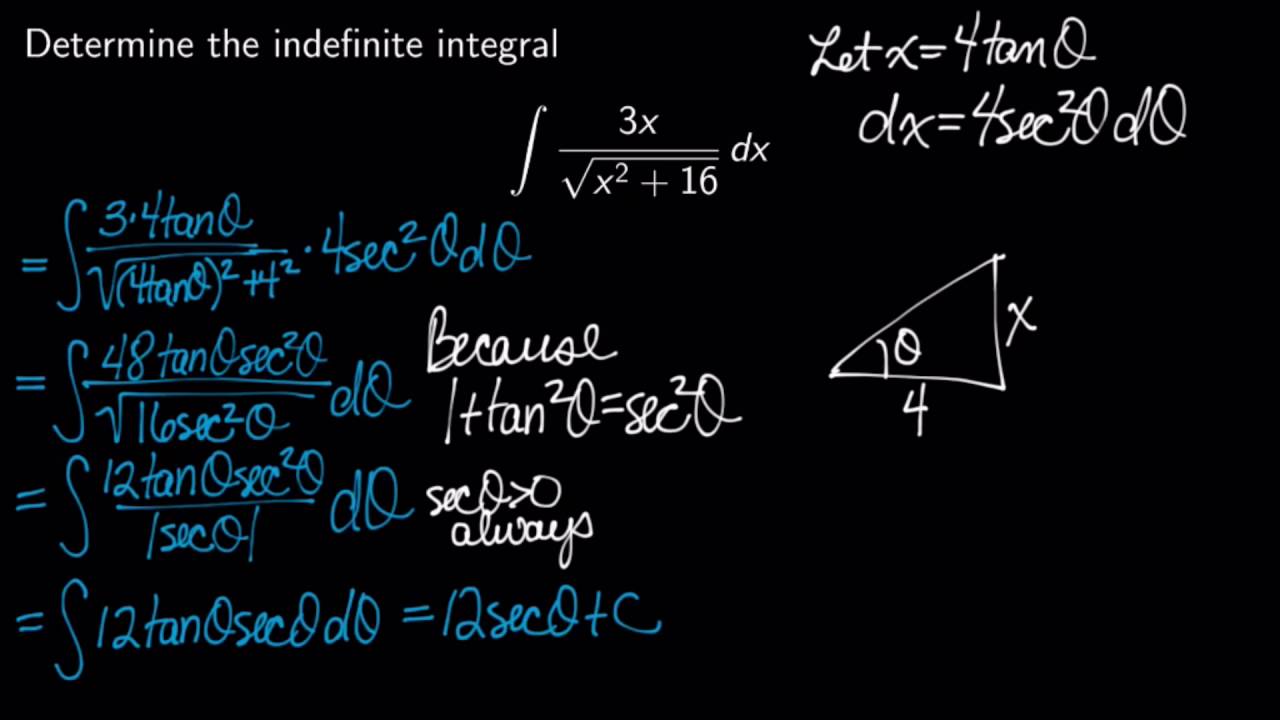 Determine the indefinite integral
Let x = 4 tan θ
dx = 4 sec²θ dθ
∫ 3x / √(x² + 16) dx
= ∫ 3·4 tan θ / √((4 tan θ)² + 4²) · 4 sec² θ dθ
= ∫ 48 tan θ sec² θ / √(16 sec² θ) dθ
Because
1 + tan² θ = sec² θ
= ∫ 12 tan θ sec² θ / |sec θ| dθ
sec θ > 0
always
= ∫ 12 tan θ sec θ dθ = 12 sec θ + C
θ
x
4